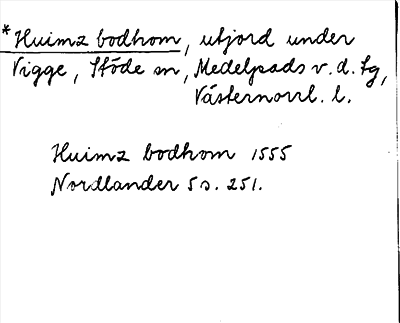 *Huimz bodhom, utjord under
Vigge, Stöde sn, Medelpads v. d. tg,
Västernorrl. l.
Huimz bodhom 1555
Nordlander 5 s. 251.